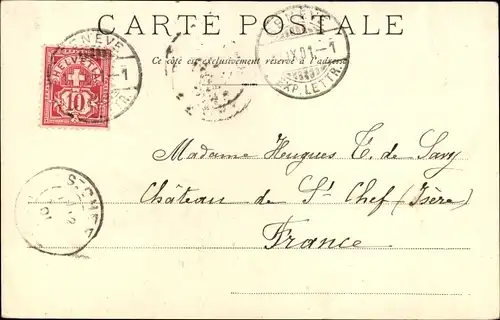 CARTE POSTALE
Ce côté est exclusivement réservé à l'adresse
GENÈVE
HELVETIA
10
GENÈVE
IX.01-1
EXP. LETTR.
Madame Hugues T. de Savy
Château de St Chef (Isère)
France
ST-CHEF